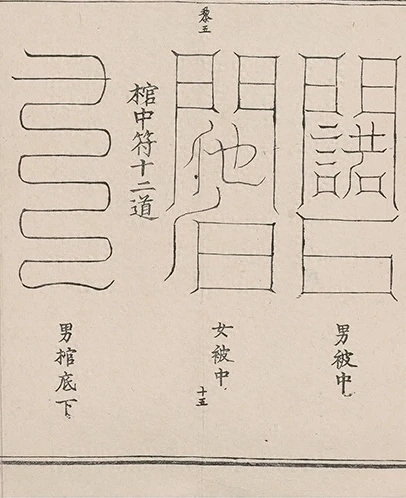 男被中
黎五
女被中
十五
棺中符十二道
男棺底下